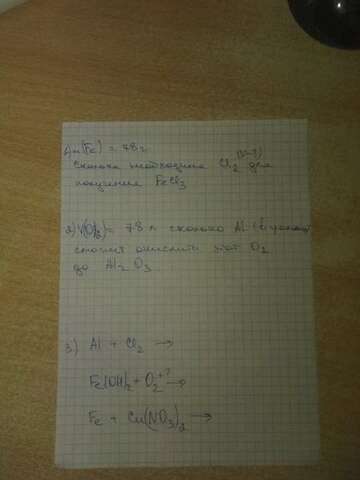 1) m(Fe) = 78 г
Сколько необходимо Cl₂ для
получения FeCl₃
2) V(O₂) = 78 л сколько Al
окислить этот O₂
до Al₂O₃
3) Al + Cl₂ →
Fe(OH)₂ + O₂ + ? →
Fe + Cu(NO₃)₂ →